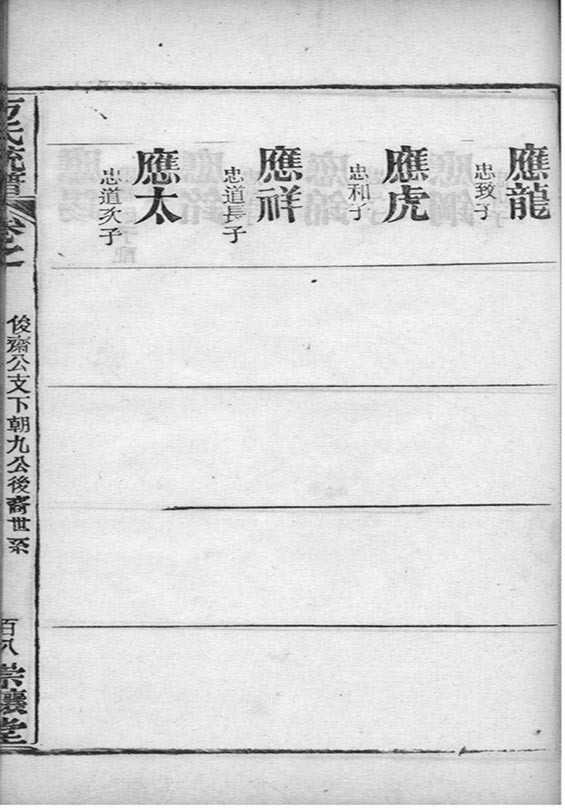 應龍
忠致子
應虎
忠和子
應祥
忠道長子
應太
忠道次子
氏統譜
卷之
俊齋公支下朝九公後裔世系
百八
崇讓堂